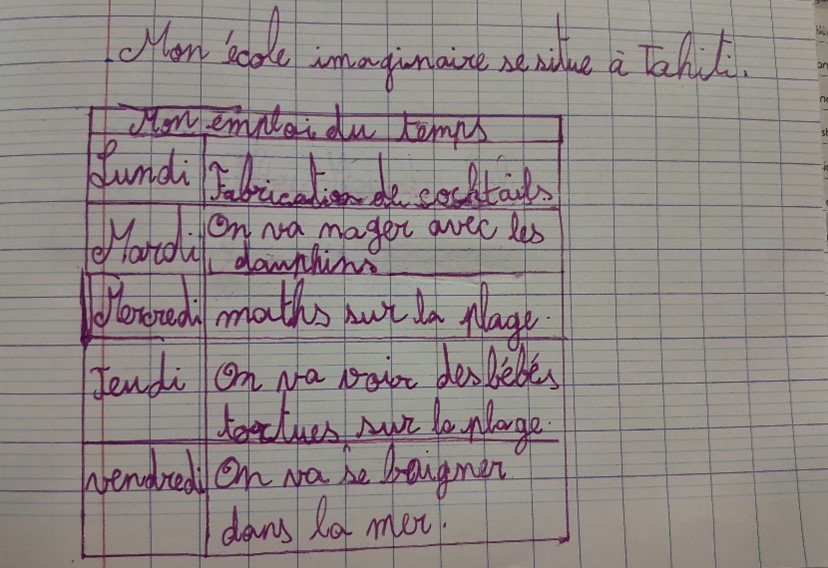 Mon école imaginaire se situe à Tahiti.
Mon emploi du temps
Lundi Fabrication de cocktails
Mardi On va nager avec les
dauphins
Mercredi maths sur la plage.
Jeudi On va voir des bébés
tortues sur la plage.
vendredi On va se baigner
dans la mer.